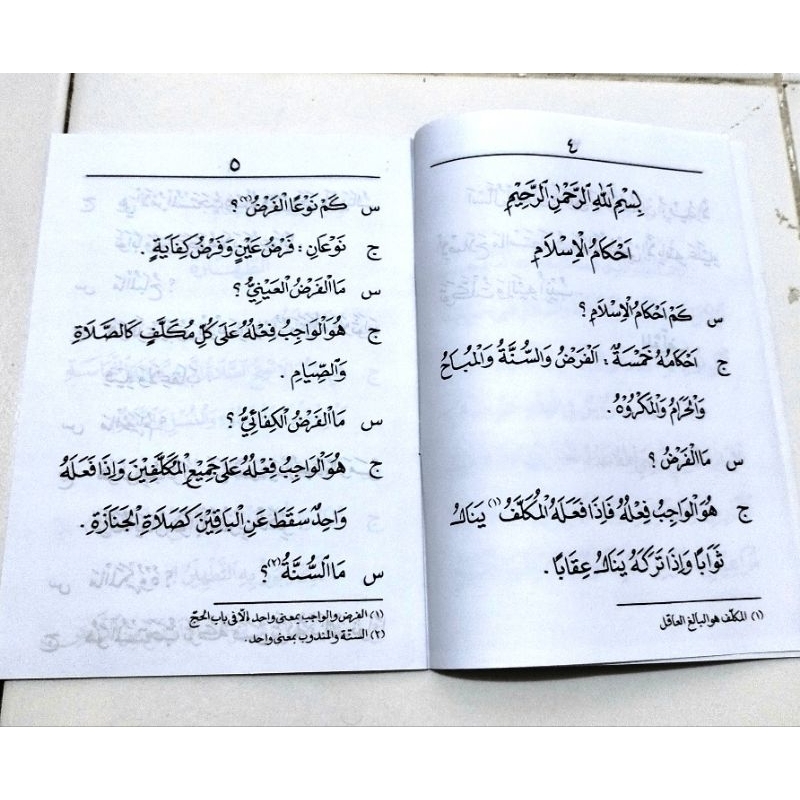 ٤
بِسْمِ اللهِ الرَّحْمٰنِ الرَّحِيْمِ
اَحْكَامُ الْاِسْلَامِ
س كَمْ اَحْكَامُ الْاِسْلَامِ؟
ج اَحْكَامُهُ خَمْسَةٌ : اَلْفَرْضُ وَالسُّنَّةُ وَالْمُبَاحُ
وَالْحَرَامُ وَالْمَكْرُوْهُ .
س مَا الْفَرْضُ ؟
ج هُوَ الْوَاجِبُ فِعْلُهُ فَاِذَا فَعَلَهُ الْمُكَلَّفُ (١) يَنَالُ
ثَوَابًا وَاِذَا تَرَكَهُ يَنَالُ عِقَابًا .
(١) المكلّف هو البالغ العاقل
٥
س كَمْ نَوْعًا الْفَرْضُ (١)؟
ج نَوْعَانِ : فَرْضُ عَيْنٍ وَفَرْضُ كِفَايَةٍ .
س مَا الْفَرْضُ الْعَيْنِيُّ ؟
ج هُوَ الْوَاجِبُ فِعْلُهُ عَلَى كُلِّ مُكَلَّفٍ كَالصَّلَاةِ
وَالصِّيَامِ .
س مَا الْفَرْضُ الْكِفَائِيُّ ؟
ج هُوَ الْوَاجِبُ فِعْلُهُ عَلَى جَمِيْعِ الْمُكَلَّفِيْنَ وَاِذَا فَعَلَهُ
وَاحِدٌ سَقَطَ عَنِ الْبَاقِيْنَ كَصَلَاةِ الْجَنَازَةِ .
س مَا السُّنَّةُ (٢)؟
(١) الفرض والواجب بمعنى واحد إلّا فى باب الحجّ
(٢) السنّة والمندوب بمعنى واحد .